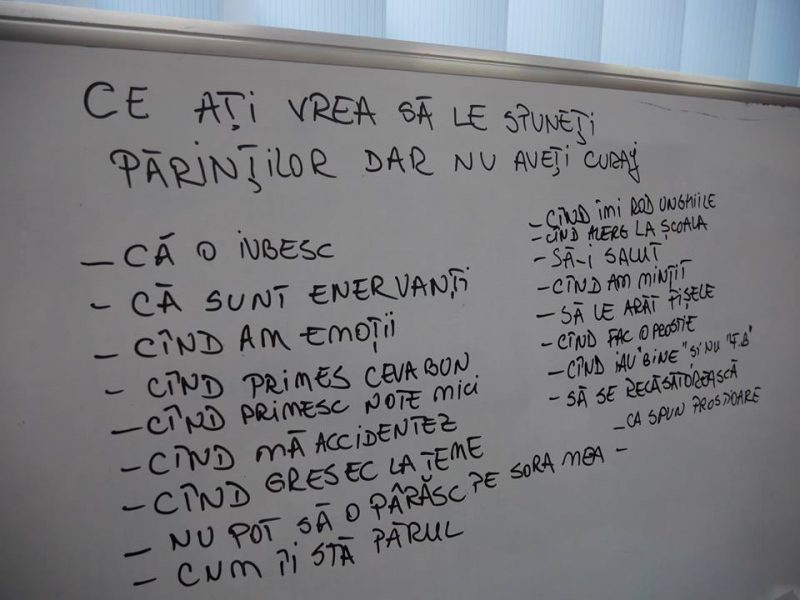 CE AȚI VREA SĂ LE SPUNEȚI
PĂRINȚILOR DAR NU AVEȚI CURAJ
– CĂ O IUBESC
– CĂ SUNT ENERVANȚI
– CÎND AM EMOȚII
– CÎND PRIMES CEVA BUN
– CÎND PRIMESC NOTE MICI
– CÎND MĂ ACCIDENTEZ
– CÎND GRESEC LA ȚEME
– NU POT SĂ O PÂRĂSC PE SORA MEA –
– CUM ÎI STĂ PĂRUL
– CÎND ÎMI ROD UNGHIILE
– CÎND ALERG LA ȘCOALA
– SĂ-I SALUT
– CÎND AM MINȚIT
– SĂ LE ARĂT FIȘELE
– CÎND FAC O PROSTIE
– CÎND IAU "BINE" ȘI NU "F.B"
– SĂ SE RECĂSĂTOREASCĂ
– CA SPUN PROSTIOARE